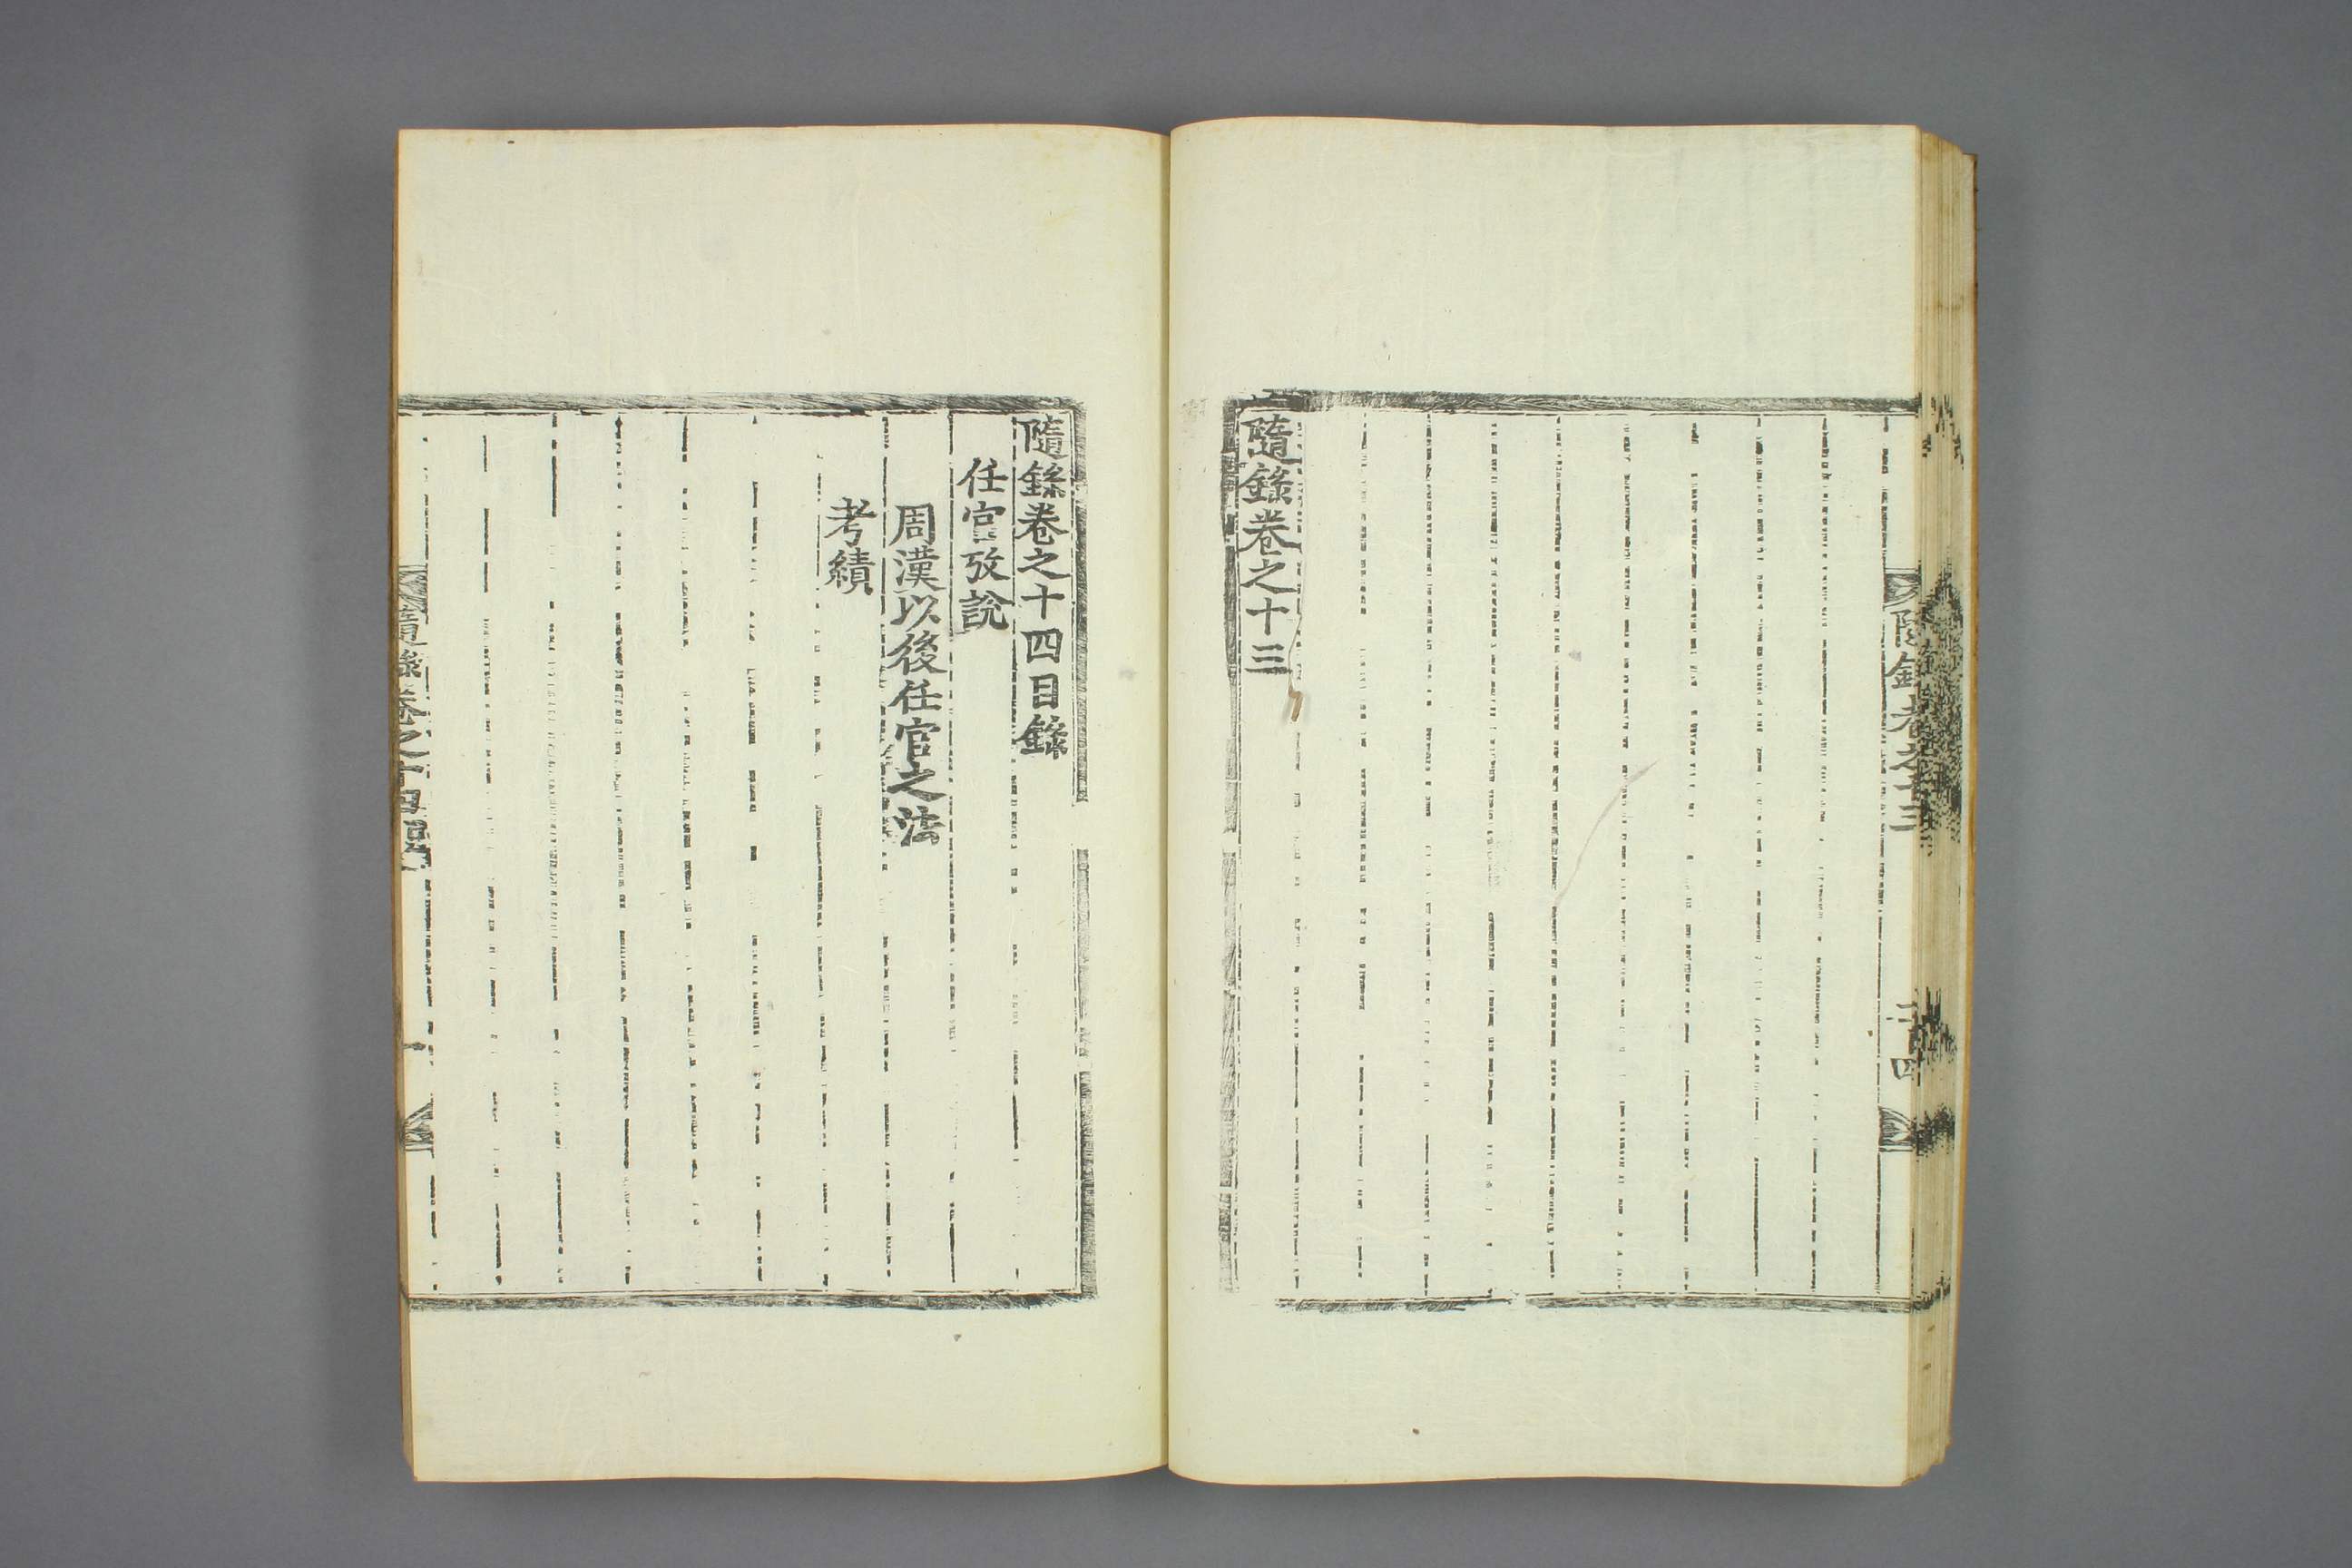 隨錄卷之十三
二十四
隨錄卷之十三
隨錄卷之十四目錄
任官攷說
周漢以後任官之法
考績
隨錄卷之十四目
一